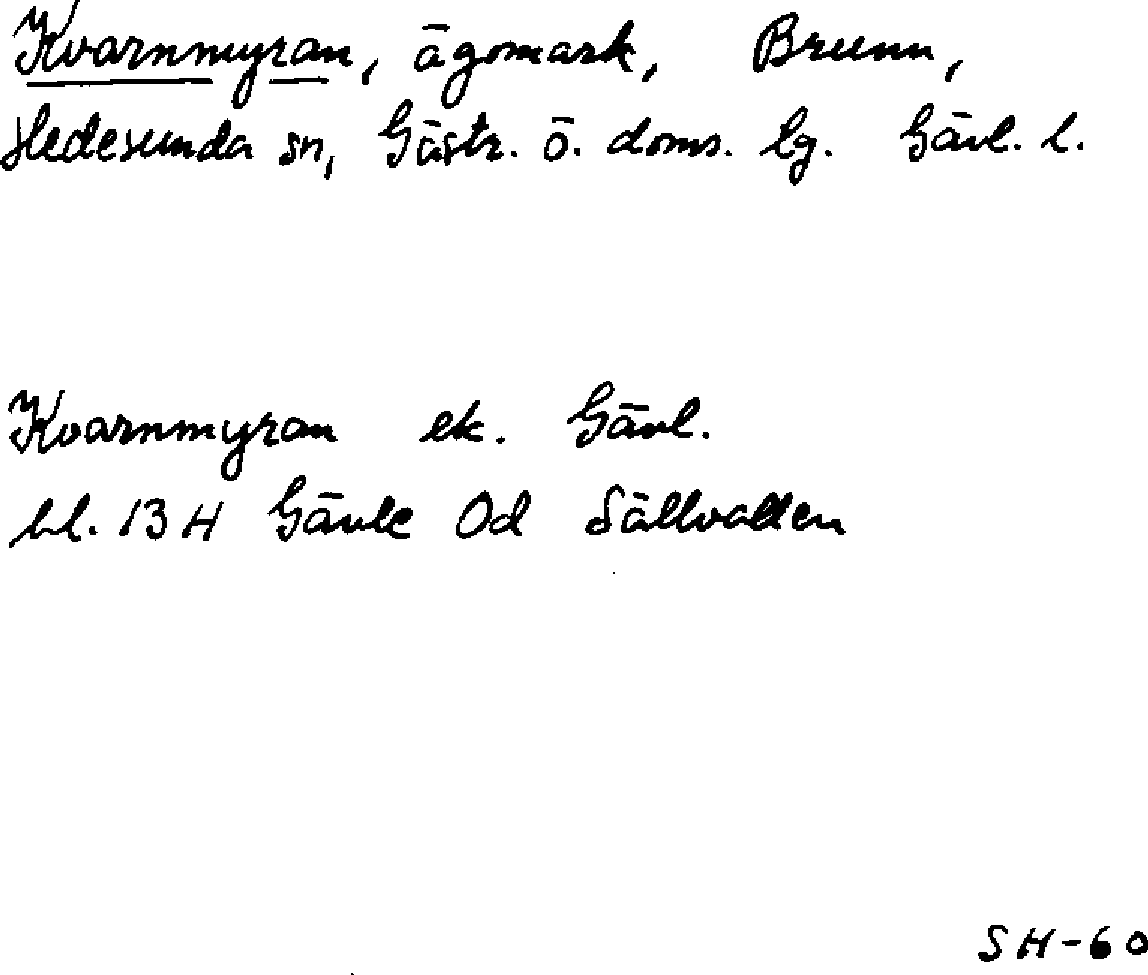 Kvarnmyran, ägomark, Brunn,
Hedesunda sn, Gästr. ö. doms. lg. Gävl. l.
Kvarnmyran ek. Gävl.
bl. 13 H Gävle Od Sällvallen
SH-60